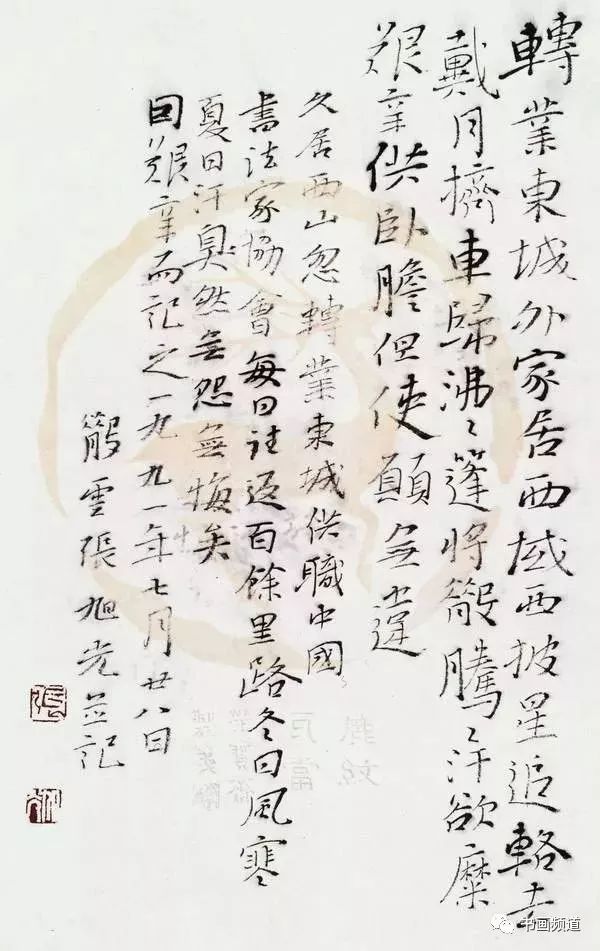 轉業東城外家居西域西披星追輅去
戴月擠車歸沸〻篷將散騰〻汗欲糜
艱辛供臥膽但使願無違
久居西山忽轉業東城供職中國
書法家協會每日往返百餘里路冬日風寒
夏日汗臭然無怨無悔矣
因艱辛而記之一九九一年七月廿八日
散雲張旭光並記
張
书画频道